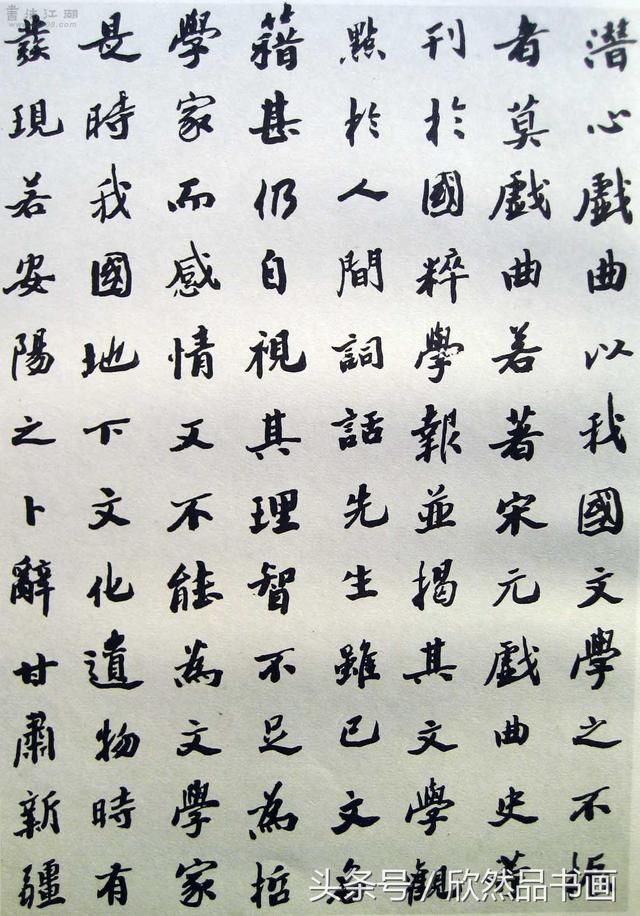 潛心戲曲以我國文學之不振
者莫戲曲若著宋元戲曲史
刊於國粹學報並揭其文學觀
點於人間詞話先生雖已文名
籍甚仍自視其理智不足為哲
學家而感情又不能為文學家
是時我國地下文化遺物時有
發現若安陽之卜辭甘肅新疆
書法江湖
头条号/欣然品书画